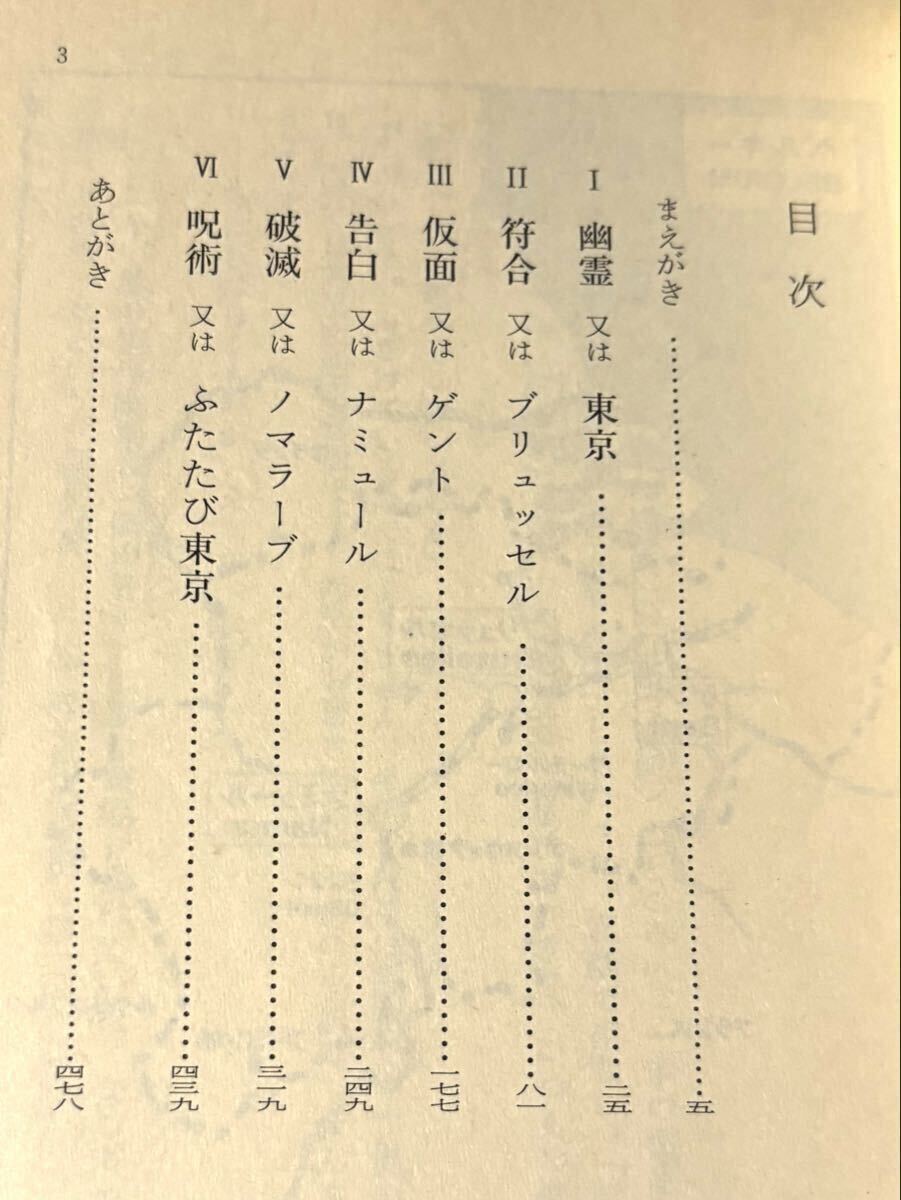 3
目次
まえがき……五
I 幽霊 又は 東京……二五
II 符合 又は ブリュッセル……八一
III 仮面 又は ゲント……一七七
IV 告白 又は ナミュール……二四九
V 破滅 又は ノマラーブ……三一九
VI 呪術 又は ふたたび東京……四三九
あとがき……四七八